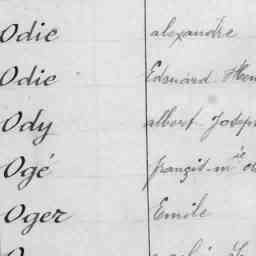 Odie alexandre
Odie Edouard
Ody albert Joseph
Ogé françis
Oger Emile